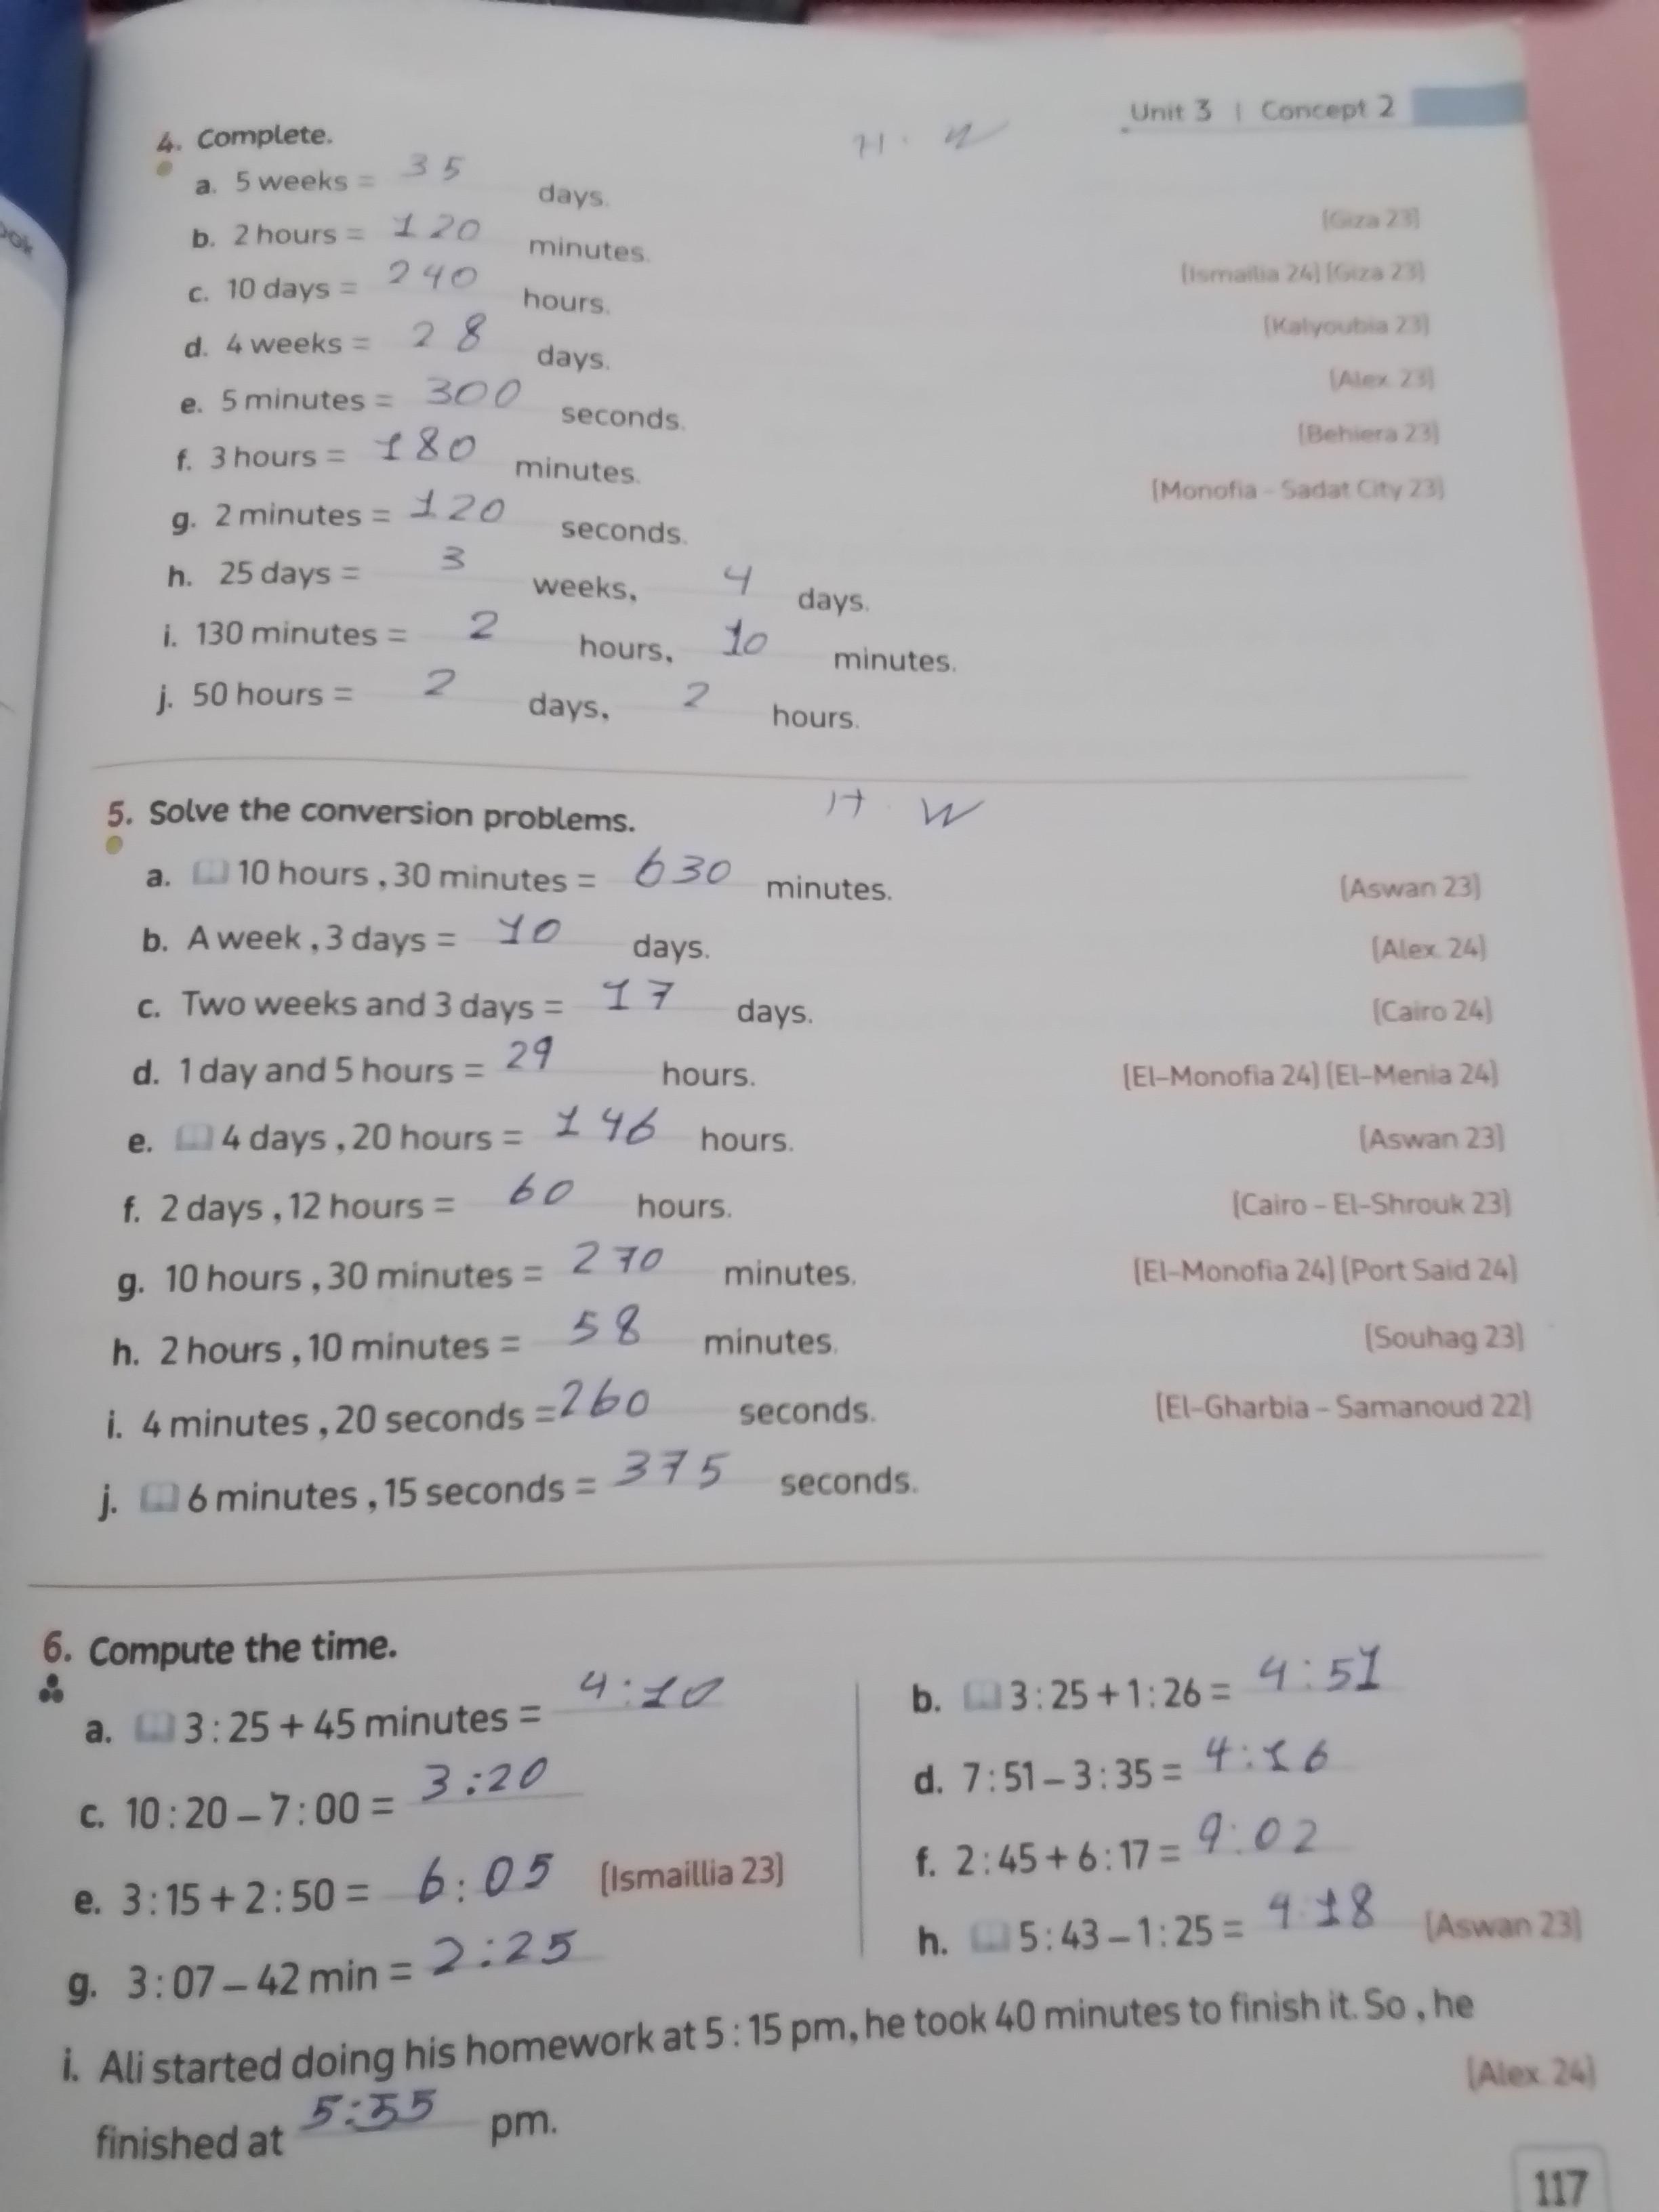 Unit 3 | Concept 2
4. Complete. H.W
a. 5 weeks = 35 days. [Giza 23]
b. 2 hours = 120 minutes. [Ismailia 24] [Giza 23]
c. 10 days = 240 hours. [Kalyoubia 23]
d. 4 weeks = 28 days. [Alex. 23]
e. 5 minutes = 300 seconds. [Behiera 23]
f. 3 hours = 180 minutes. [Monofia - Sadat City 23]
g. 2 minutes = 120 seconds.
h. 25 days = 3 weeks, 4 days.
i. 130 minutes = 2 hours, 10 minutes.
j. 50 hours = 2 days, 2 hours.
5. Solve the conversion problems. H.W
a. 10 hours , 30 minutes = 630 minutes. [Aswan 23]
b. A week , 3 days = 10 days. [Alex. 24]
c. Two weeks and 3 days = 17 days. [Cairo 24]
d. 1 day and 5 hours = 29 hours. [El-Monofia 24] [El-Menia 24]
e. 4 days , 20 hours = 146 hours. [Aswan 23]
f. 2 days , 12 hours = 60 hours. [Cairo - El-Shrouk 23]
g. 10 hours , 30 minutes = 270 minutes. [El-Monofia 24] [Port Said 24]
h. 2 hours , 10 minutes = 58 minutes. [Souhag 23]
i. 4 minutes , 20 seconds = 260 seconds. [El-Gharbia - Samanoud 22]
j. 6 minutes , 15 seconds = 375 seconds.
6. Compute the time.
a. 3 : 25 + 45 minutes = 4:10
b. 3 : 25 + 1 : 26 = 4:51
c. 10 : 20 – 7 : 00 = 3:20
d. 7 : 51 – 3 : 35 = 4:16
e. 3 : 15 + 2 : 50 = 6:05 [Ismaillia 23]
f. 2 : 45 + 6 : 17 = 9:02
g. 3 : 07 – 42 min = 2:25
h. 5 : 43 – 1 : 25 = 4:18 [Aswan 23]
i. Ali started doing his homework at 5 : 15 pm, he took 40 minutes to finish it. So , he
finished at 5:55 pm. [Alex. 24]
117